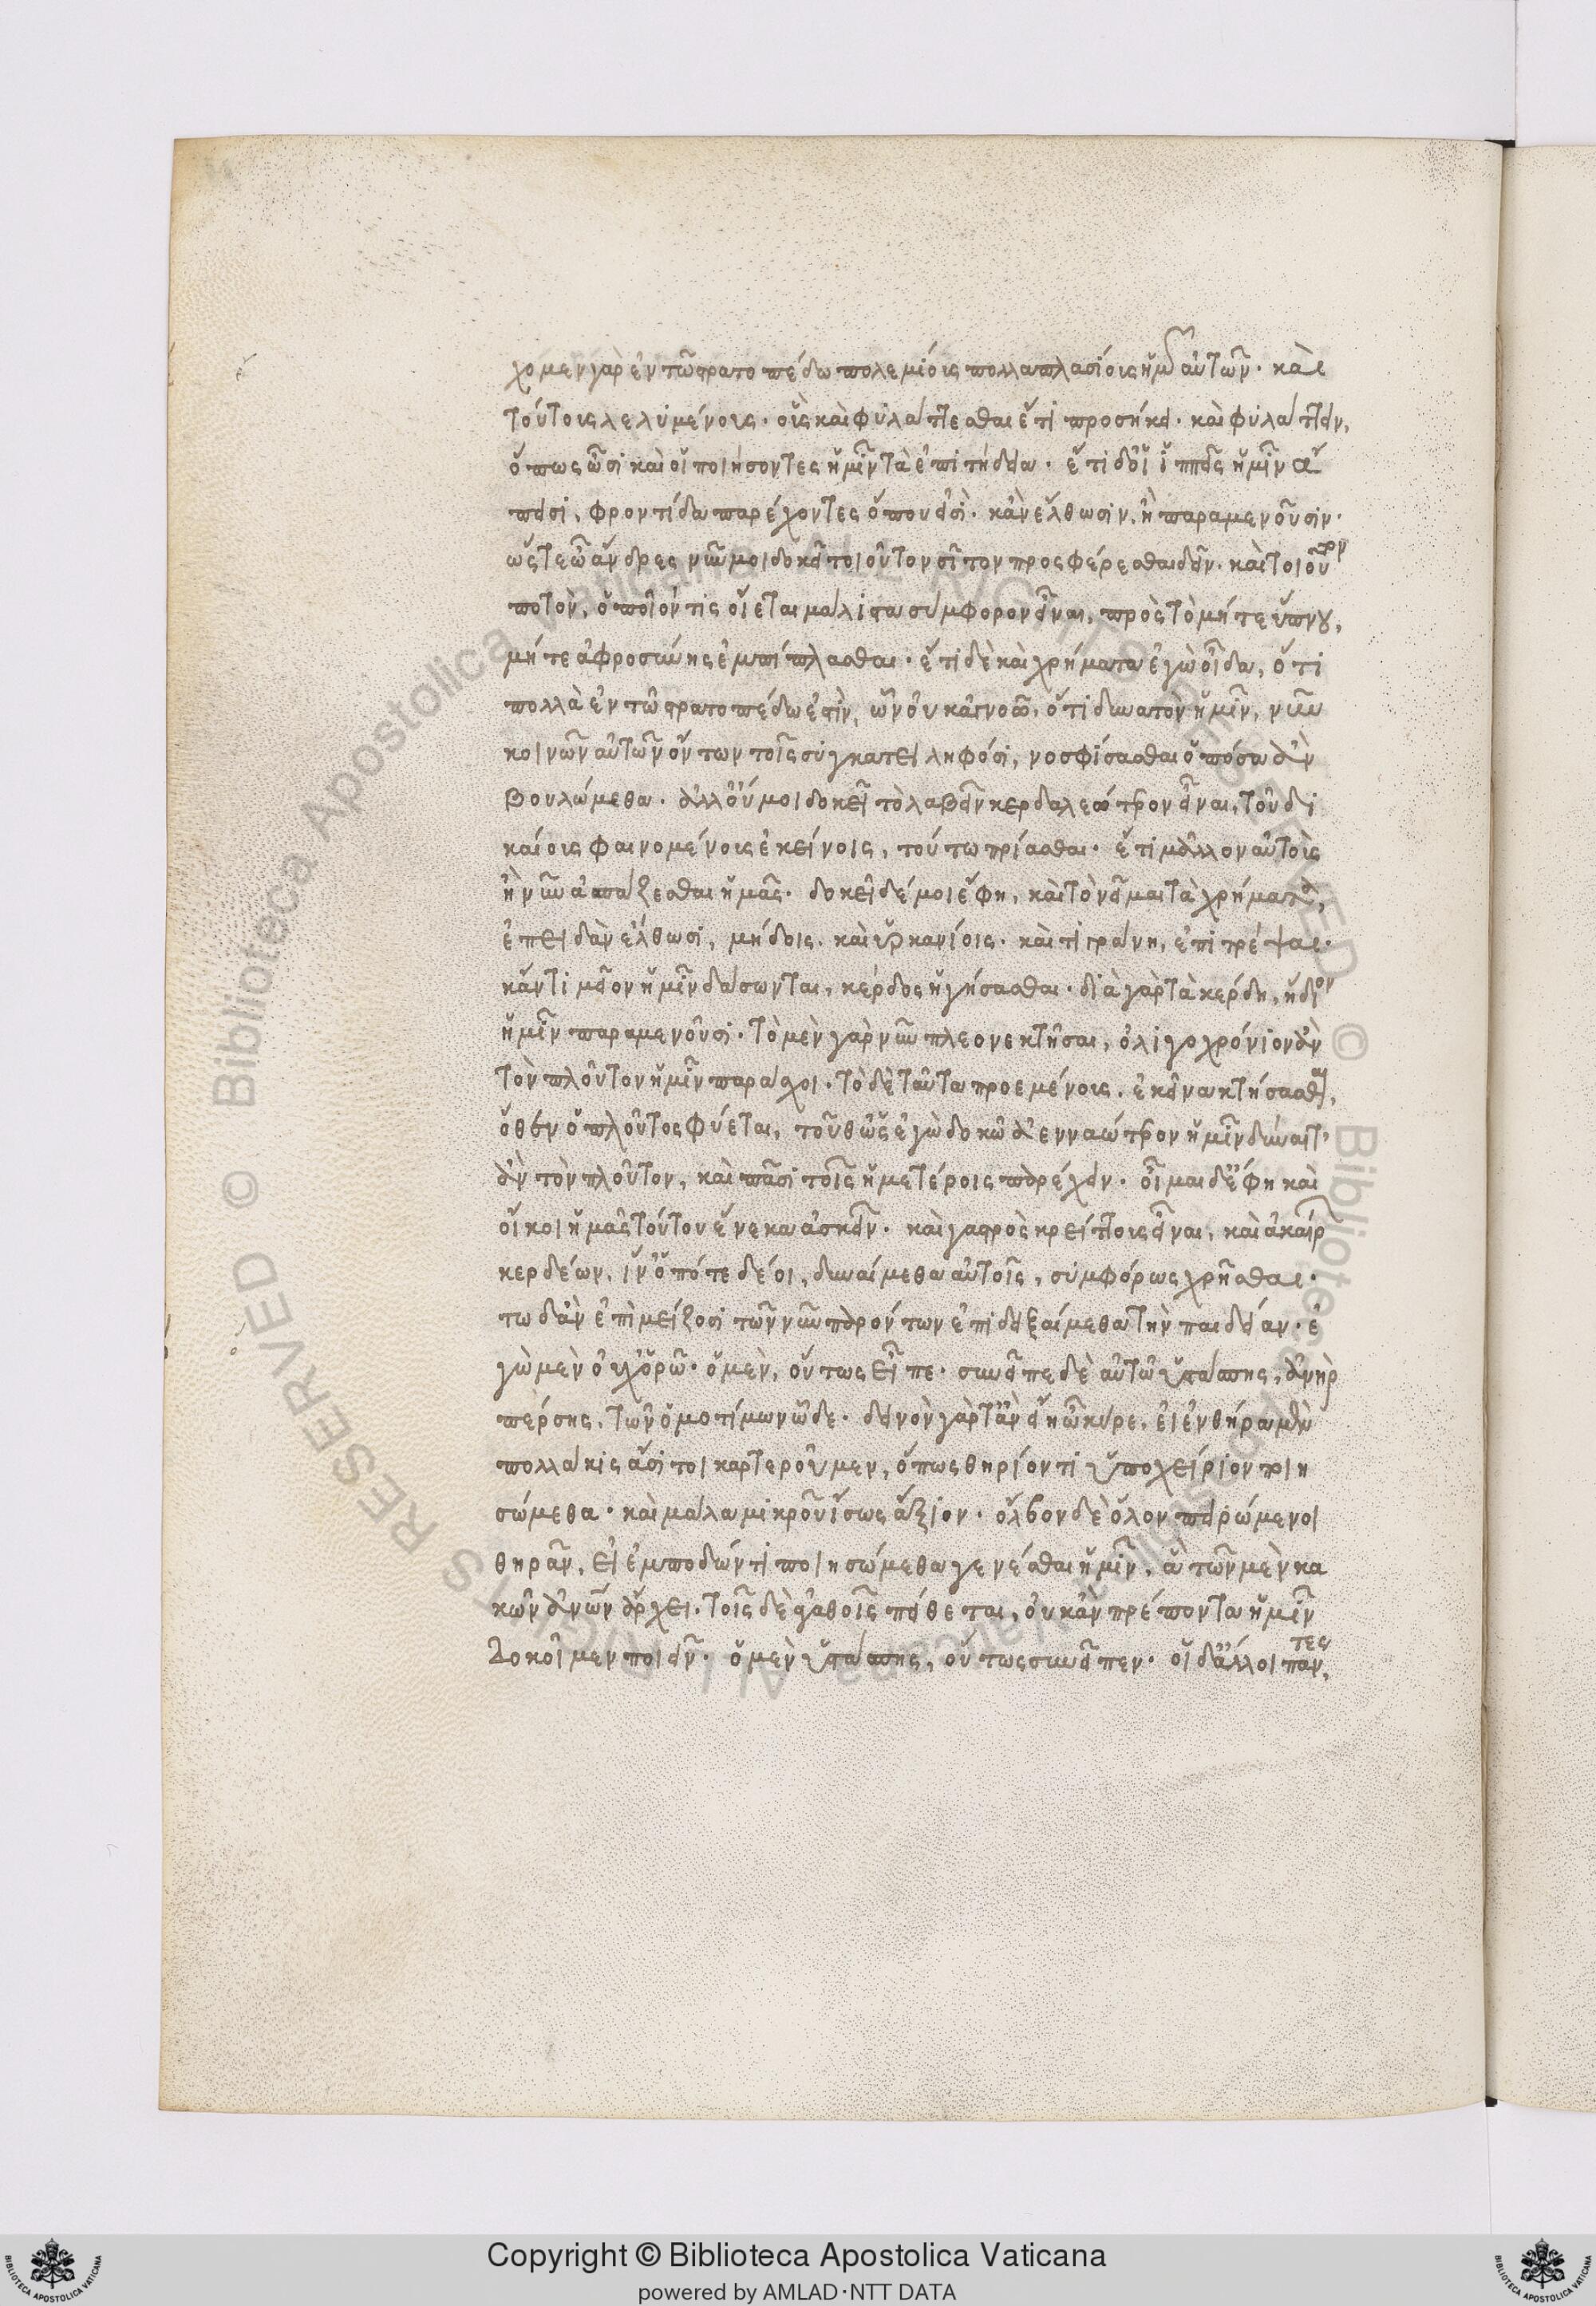 χομεν γὰρ ἐν τῶ στρατοπέδω πολεμίοις πολλαπλασίοις ἡμῶν αὐτῶν· καὶ
τούτοις λελυμένοις· οἷς καὶ φυλάττεσθαι ἔτι προσήκει· καὶ φυλάττειν,
ὅπως ὦσι καὶ οἱ ποιήσοντες ἡμῖν τὰ ἐπιτήδεια· ἔτι δ' οἱ ἱππεῖς ἡμῖν ἄ
πεισι, φροντίδα παρέχοντες ὅπου εἰσί· κἂν ἔλθωσιν, ἢ παραμενοῦσιν·
ὥστε ὦ ἄνδρες νῦν μοι δοκεῖ τοιοῦτον σῖτον προσφέρεσθαι δεῖν· καὶ τοιοῦτον
ποτὸν, ὁποῖόν τις οἴεται μάλιστα σύμφορον εἶναι, πρὸς τὸ μήτε ὕπνου,
μήτε ἀφροσύνης ἐμπίπλασθαι· ἔτι δὲ καὶ χρήματα ἐγὼ οἶδα, ὅτι
πολλὰ ἐν τῶ στρατοπέδω ἐστὶν, ὧν οὐκ ἀγνοῶ, ὅτι δυνατὸν ἡμῖν, νῦν
κοινῶν αὐτῶν ὄντων τοῖς συγκατειληφόσι, νοσφίσασθαι ὁπόσα ἂν
βουλώμεθα· ἀλλ' οὔ μοι δοκεῖ τὸ λαβεῖν κερδαλεώτερον εἶναι, τοῦ δι
καίοις φαινομένοις ἐκείνοις, τούτω πρίασθαι· ἔτι μᾶλλον αὐτοῖς
ἢ νῦν ἀσπάζεσθαι ἡμᾶς· δοκεῖ δέ μοι ἔφη, καὶ τὸ νεῖμαι τὰ χρήματα,
ἐπειδὰν ἔλθωσι, μήδοις· καὶ ὑρκανίοις· καὶ τιγράνη, ἐπιτρέψαι·
κἄν τι μεῖον ἡμῖν δάσωνται, κέρδος ἡγήσασθαι· διὰ γὰρ τὰ κέρδη, ἥδιον
ἡμῖν παραμενοῦσι· τὸ μὲν γὰρ νῦν πλεονεκτῆσαι, ὀλιγοχρόνιον ἂν
τὸν πλοῦτον ἡμῖν παράσχοι· τὸ δὲ ταῦτα προεμένοις, ἐκεῖνα κτήσασθαι,
ὅθεν ὁ πλοῦτος φύεται, τοῦθ' ὡς ἐγὼ δοκῶ ἀενναώτερον ἡμῖν δύναιτ'
ἂν τὸν πλοῦτον, καὶ πᾶσι τοῖς ἡμετέροις παρέχειν· οἶμαι δ' ἔφη καὶ
οἴκοι ἡμᾶς τούτου ἕνεκα ἀσκεῖν· καὶ γαστρὸς κρείττοις εἶναι, καὶ ἀκαίρων
κερδέων, ἵν' ὁπότε δέοι, δυναίμεθα αὐτοῖς, συμφόρως χρῆσθαι·
τω δ' ἂν ἐπὶ μείζοσι τῶν νῦν παρόντων ἐπιδειξαίμεθα τὴν παιδείαν· ἐ
γὼ μὲν οὐχ ὁρῶ· ὁ μὲν, οὕτως εἶπε· συνεῖπε δὲ αὐτῶ ὑστάσπης, ἀνὴρ
πέρσης, τῶν ὁμοτίμων ὧδε· δεινὸν γὰρ τἂν εἴη ὦ κῦρε, εἰ ἐν θήρα μὲν
πολλάκις ἄσιτοι καρτεροῦμεν, ὅπως θηρίον τι ὑποχείριον ποιη
σώμεθα· καὶ μάλα μικροῦ ἴσως ἄξιον· ὄλβον δὲ ὅλον πειρώμενοι
θηρᾶν, εἰ ἐμποδών τι ποιησώμεθα γενέσθαι ἡμῖν, ἃ τῶν μὲν κα
κῶν ἀν̅ων ἄρχει· τοῖς δὲ ἀγαθοῖς πείθεται, οὐκ ἂν πρέποντα ἡμῖν
Δοκοῖμεν ποιεῖν· ὁ μὲν ὑστάσπης, οὕτως συνεῖπεν· οἱ δ' ἄλλοι πάντες,
Copyright © Biblioteca Apostolica Vaticana
powered by AMLAD·NTT DATA